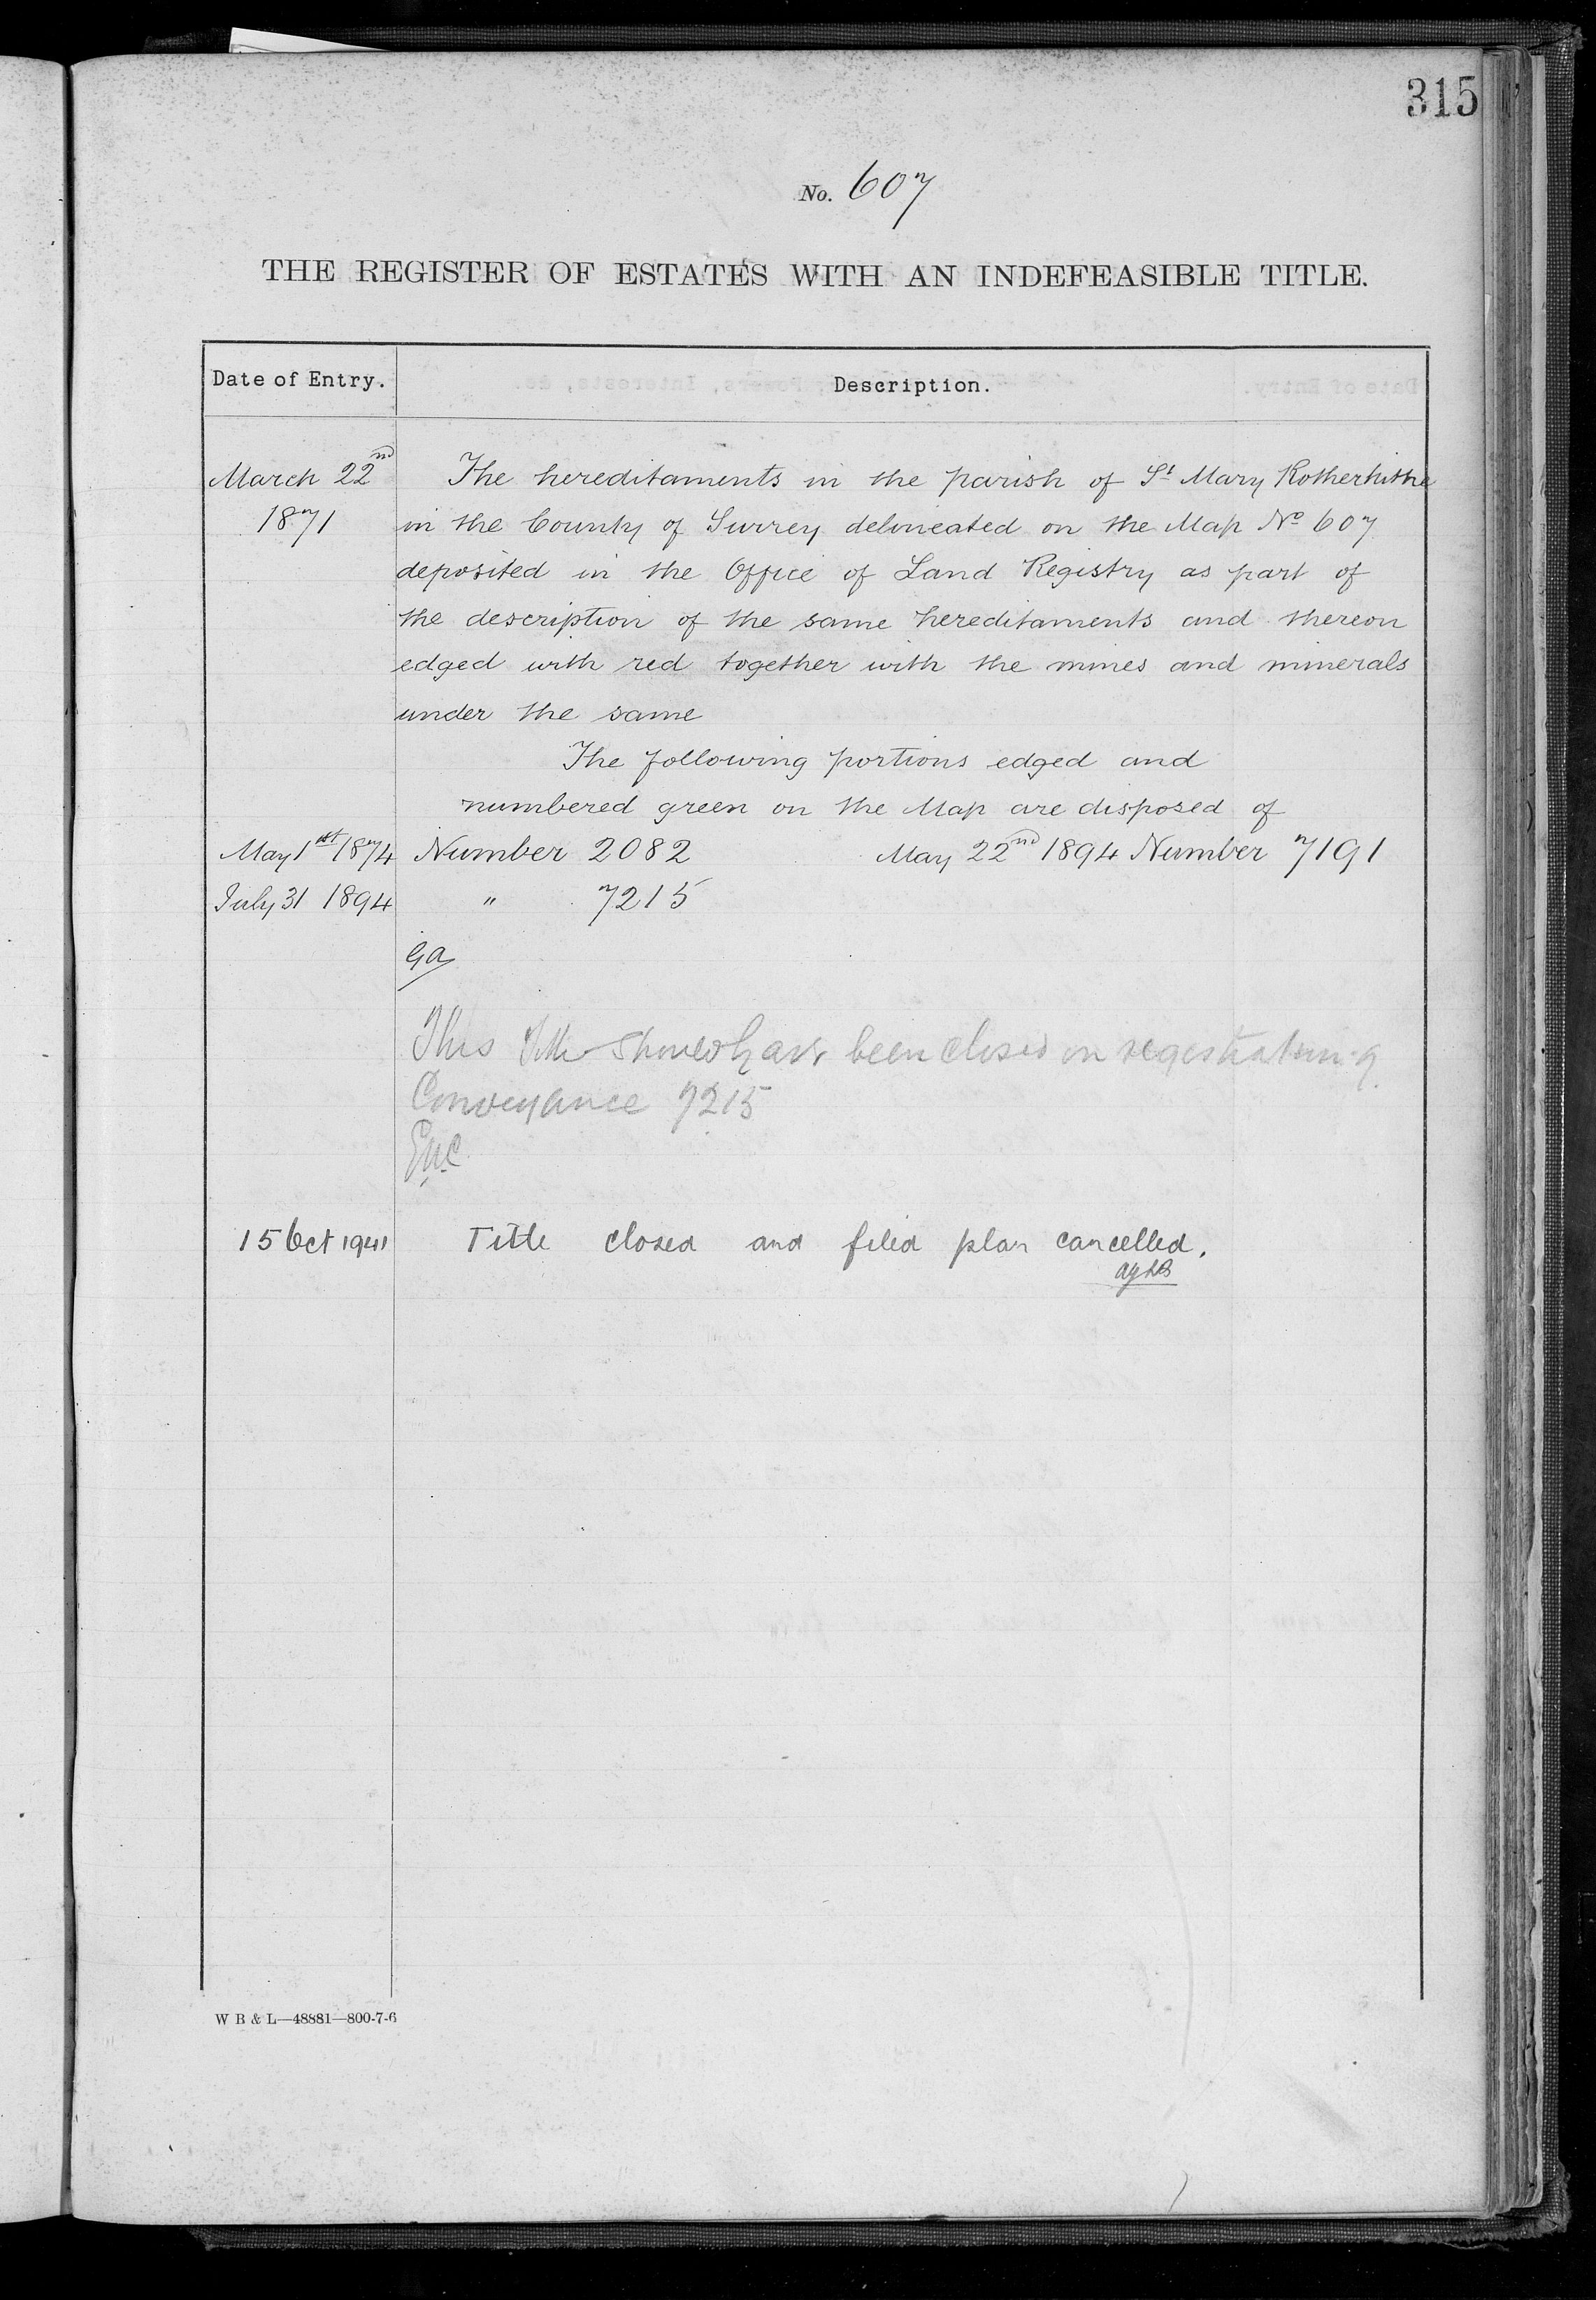 315
No. 607
THE REGISTER OF ESTATES WITH AN INDEFEASIBLE TITLE.
Date of Entry. Description.
March 22nd The hereditaments in the parish of St Mary Rotherhithe
1871 in the County of Surrey delineated on the Map No 607
deposited in the Office of Land Registry as part of
the description of the same hereditaments and thereon
edged with red together with the mines and minerals
under the same
The following portions edged and
numbered green on the Map are disposed of
May 1st 1874 Number 2082 May 22nd 1894 Number 7191
July 31 1894 " 7215
This Title should have been closed on registration of
Conveyance 7215
15 Oct 1941 Title closed and filed plan cancelled.
W B & L—48881—800-7-6